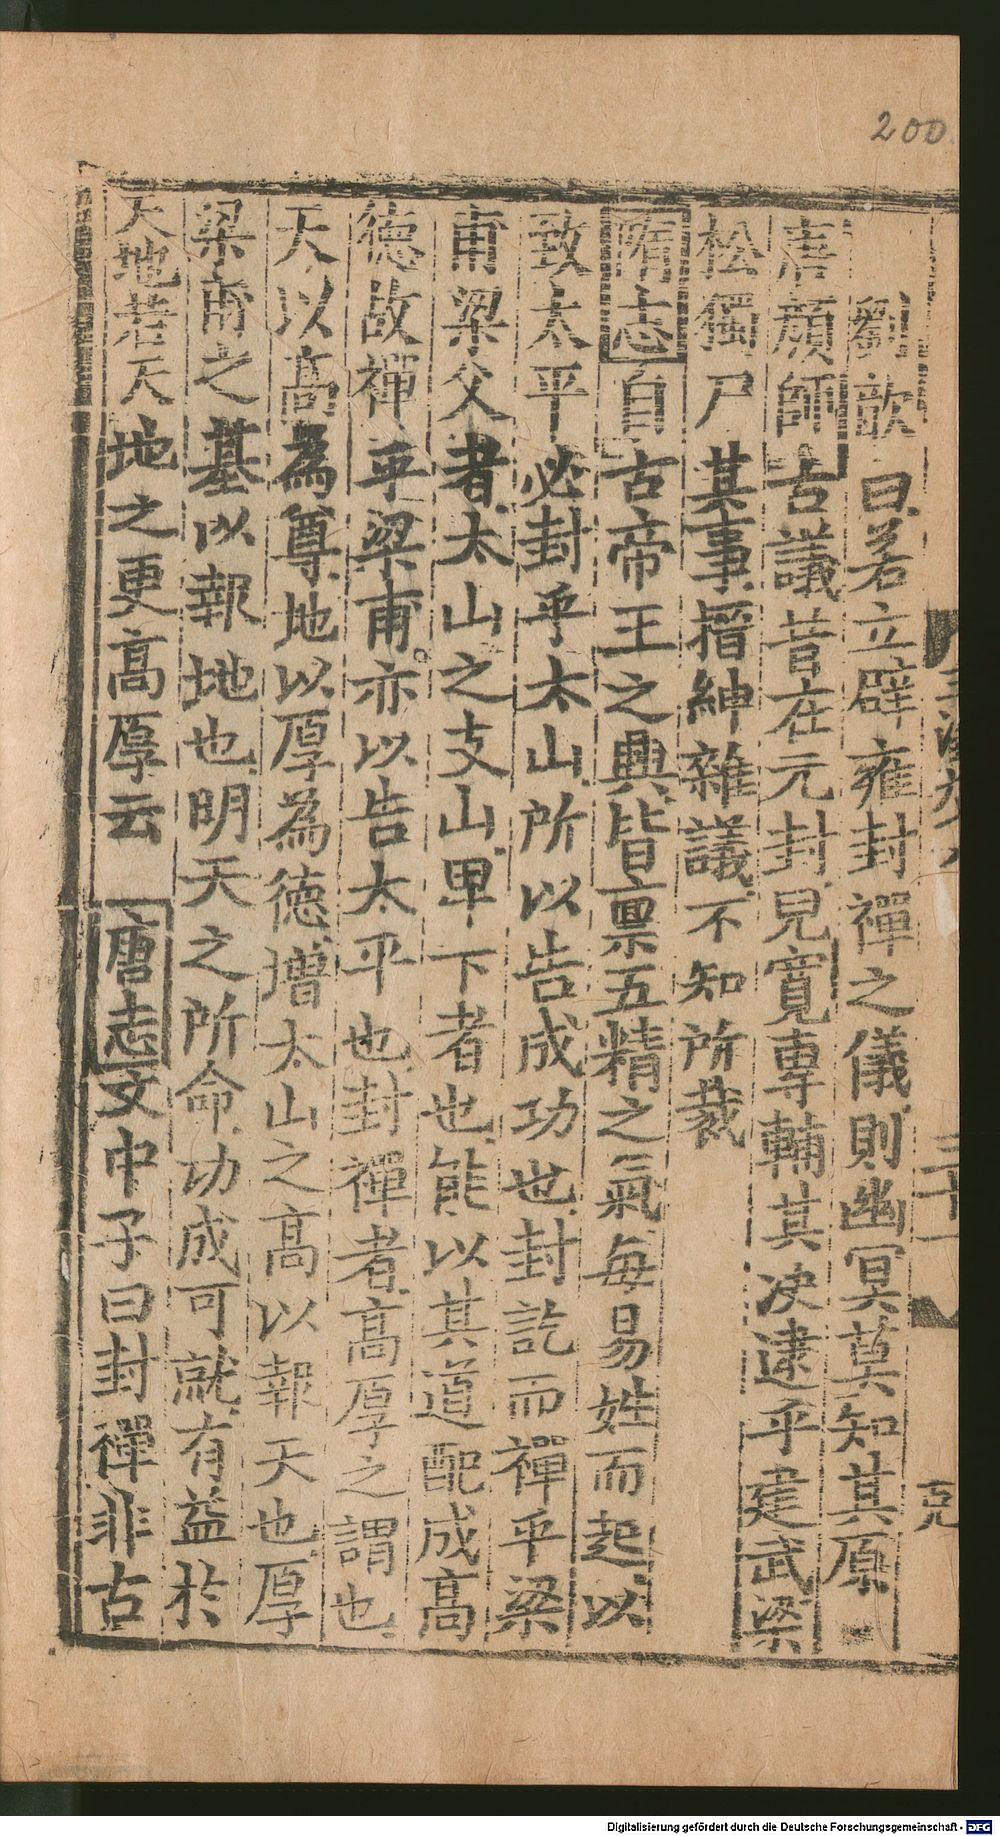 200
劉歆曰若立辟雍封禪之儀則幽冥莫知其原
唐顏師古議昔在元封見寬專輔其决逮乎建武梁
松獨尸其事搢紳雜議不知所裁
隋志自古帝王之興皆稟五精之氣每易姓而起以
致太平必封乎太山所以告成功也封訖而禪乎梁
甫梁父者太山之支山卑下者也能以其道配成高
德故禪乎梁甫亦以告太平也封禪者高厚之謂也
天以高為尊地以厚為德增太山之高以報天也厚
梁甫之基以報地也明天之所命功成可就有益於
天地若天地之更高厚云 唐志文中子曰封禪非古
三十一
克
Digitalisierung gefördert durch die Deutsche Forschungsgemeinschaft - DFG